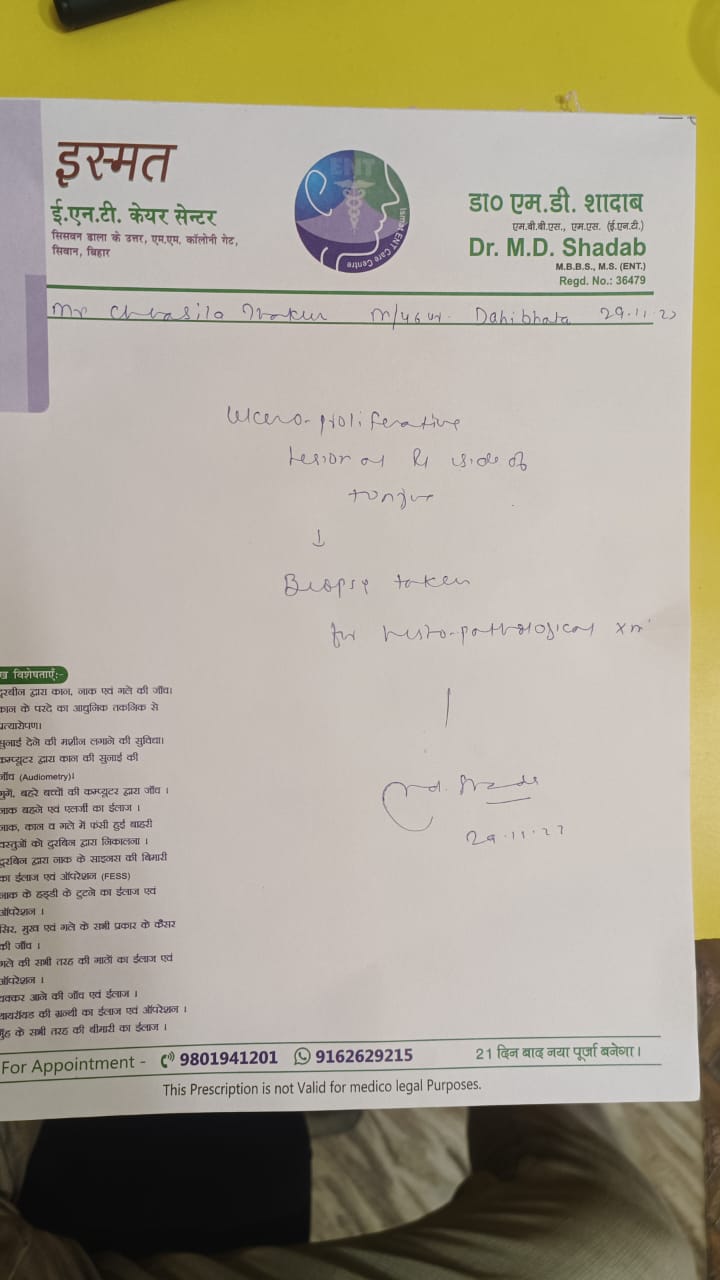 इस्मत
ई.एन.टी. केयर सेन्टर
सिसवन ढाला के उत्तर, एम.एम. कॉलोनी गेट,
सिवान, बिहार
ENT
Ismat ENT Care Centre
डा० एम.डी. शादाब
एम.बी.बी.एस., एम.एस. (ई.एन.टी.)
Dr. M.D. Shadab
M.B.B.S., M.S. (ENT.)
Regd. No.: 36479
Mr M/46 yr. Dahibhata 29.11.22
Ulcero-proliferative
lesion at Rt side of
tongue
↓
Biopsy taken
for histo-pathological xmⁿ
29.11.22
विशेषताएँ:-
दूरबीन द्वारा कान, नाक एवं गले की जाँच।
कान के परदे का आधुनिक तकनिक से
प्रत्यारोपण।
सुनाई देने की मशीन लगाने की सुविधा।
कम्प्यूटर द्वारा कान की सुनाई की
जाँच (Audiometry)।
गुमें, बहरे बच्चों की कम्प्यूटर द्वारा जाँच ।
नाक बहने एवं एलर्जी का ईलाज ।
नाक, कान व गले में फंसी हुई बाहरी
वस्तुओं को दुरबिन द्वारा निकालना ।
दूरबिन द्वारा नाक के साइनस की बिमारी
का ईलाज एवं ऑपरेशन (FESS)
नाक के हड्डी के टुटने का ईलाज एवं
ऑपरेशन ।
सिर, मुख एवं गले के सभी प्रकार के कैंसर
की जाँच ।
गले की सभी तरह की गाठों का ईलाज एवं
ऑपरेशन ।
चक्कर आने की जाँच एवं ईलाज ।
थायरॉयड की ग्रन्थी का ईलाज एवं ऑपरेशन ।
मुँह के सभी तरह की बीमारी का ईलाज ।
For Appointment - 9801941201 9162629215 21 दिन बाद नया पूर्जा बनेगा।
This Prescription is not Valid for medico legal Purposes.